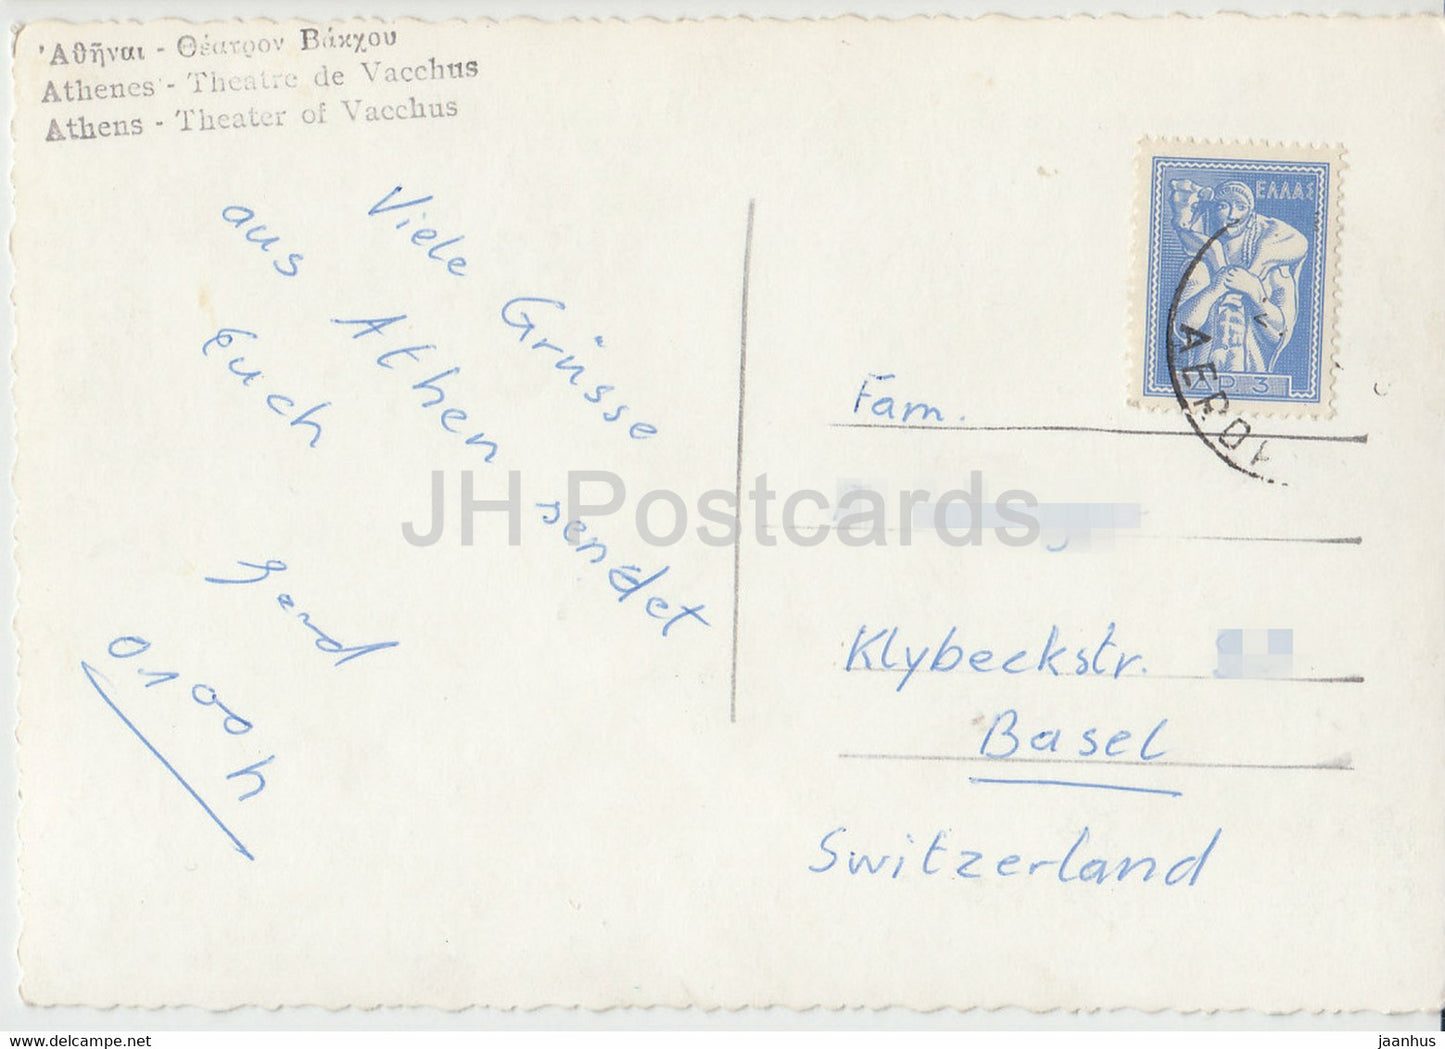 'Αθῆναι - Θέατρον Βάκχου
Athenes - Theatre de Vacchus
Athens - Theater of Vacchus
Viele Grüsse
aus Athen sendet
Euch
0100h
ΕΛΛΑΣ
ΔΡ. 3
ΑΕΡΟΔ
Fam.
Klybeckstr.
Basel
Switzerland
JH Postcards
www.delcampe.net
jaanhus